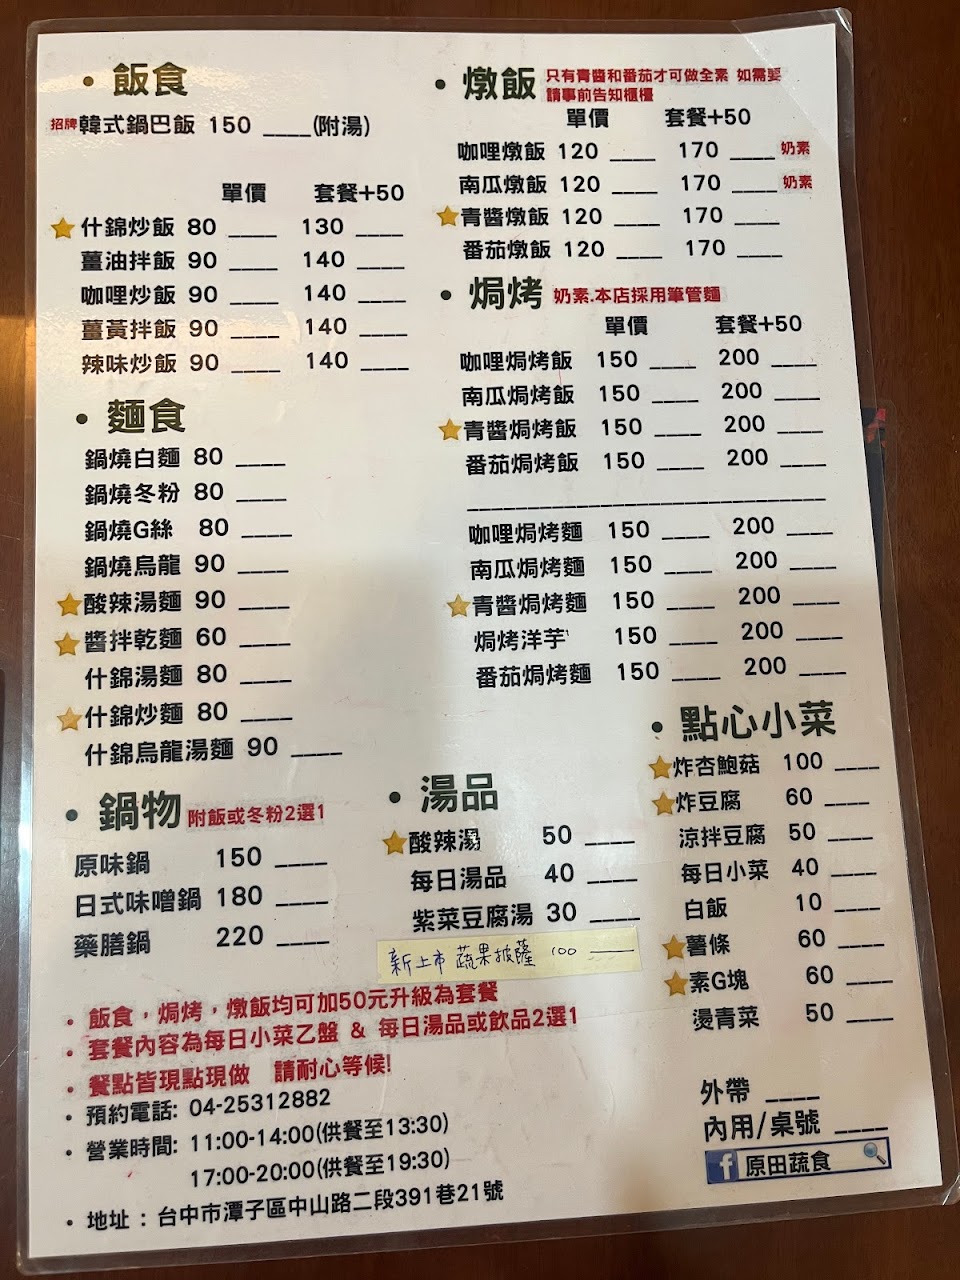 • 飯食
招牌韓式鍋巴飯 150 ____(附湯)
單價 套餐+50
什錦炒飯 80 ____ 130 ____
薑油拌飯 90 ____ 140 ____
咖哩炒飯 90 ____ 140 ____
薑黃拌飯 90 ____ 140 ____
辣味炒飯 90 ____ 140 ____
• 麵食
鍋燒白麵 80 ____
鍋燒冬粉 80 ____
鍋燒G絲 80 ____
鍋燒烏龍 90 ____
酸辣湯麵 90 ____
醬拌乾麵 60 ____
什錦湯麵 80 ____
什錦炒麵 80 ____
什錦烏龍湯麵 90 ____
• 鍋物 附飯或冬粉2選1
原味鍋 150 ____
日式味噌鍋 180 ____
藥膳鍋 220 ____
• 燉飯 只有青醬和番茄才可做全素 如需要
請事前告知櫃檯
單價 套餐+50
咖哩燉飯 120 ____ 170 ____ 奶素
南瓜燉飯 120 ____ 170 ____ 奶素
青醬燉飯 120 ____ 170 ____
番茄燉飯 120 ____ 170 ____
• 焗烤 奶素.本店採用筆管麵
單價 套餐+50
咖哩焗烤飯 150 ____ 200 ____
南瓜焗烤飯 150 ____ 200 ____
青醬焗烤飯 150 ____ 200 ____
番茄焗烤飯 150 ____ 200 ____
咖哩焗烤麵 150 ____ 200 ____
南瓜焗烤麵 150 ____ 200 ____
青醬焗烤麵 150 ____ 200 ____
焗烤洋芋 150 ____ 200 ____
番茄焗烤麵 150 ____ 200 ____
• 湯品
酸辣湯 50 ____
每日湯品 40 ____
紫菜豆腐湯 30 ____
新上市 蔬果披薩 100 ____
• 點心小菜
炸杏鮑菇 100 ____
炸豆腐 60 ____
涼拌豆腐 50 ____
每日小菜 40 ____
白飯 10 ____
薯條 60 ____
素G塊 60 ____
燙青菜 50 ____
• 飯食，焗烤，燉飯均可加50元升級為套餐
• 套餐內容為每日小菜乙盤 & 每日湯品或飲品2選1
• 餐點皆現點現做 請耐心等候!
• 預約電話: 04-25312882
• 營業時間: 11:00-14:00(供餐至13:30)
17:00-20:00(供餐至19:30)
• 地址：台中市潭子區中山路二段391巷21號
外帶 ____
內用/桌號 ____
f 原田蔬食